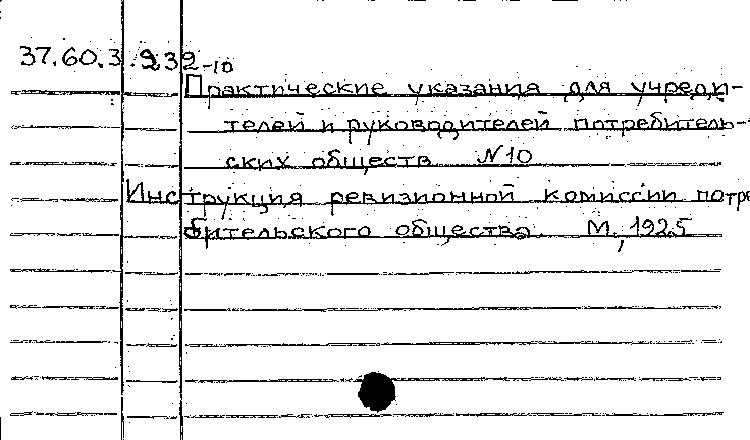 37.60.3.232-10
Практические указания для учреди-
телей и руководителей потребитель-
ских обществ N10
Инструкция ревизионной комиссии потре
бительского общества. М., 1925